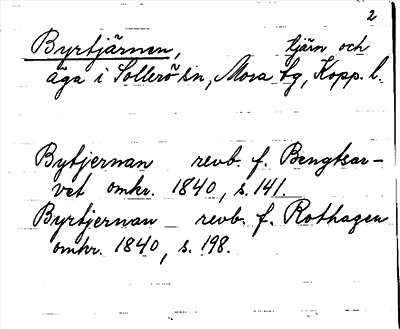 2
Byrtjärnen, tjärn och
äga i Sollerö sn, Mora tg, Kopp. l.
Bytjernan revb. f. Bengtsar-
vet omkr. 1840, s. 141.
Byrtjernan revb. f. Rothagen
omkr. 1840, s. 198.